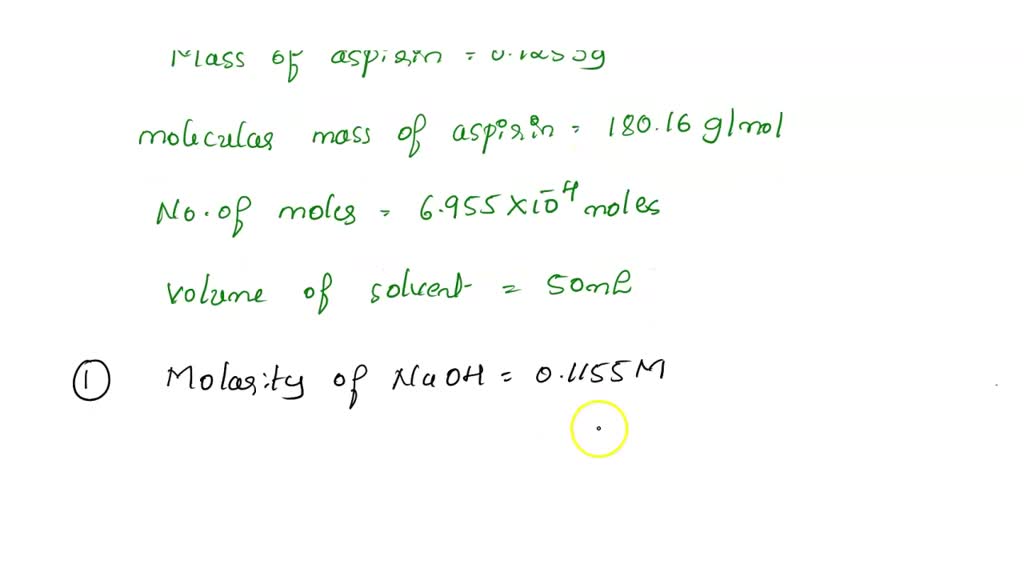 Mass of aspirin = 0.1253g
molecular mass of aspirin = 180.16 g/mol
No. of moles = 6.955 X 10⁻⁴ moles
volume of solvent = 50mL
① Molarity of NaOH = 0.1155M